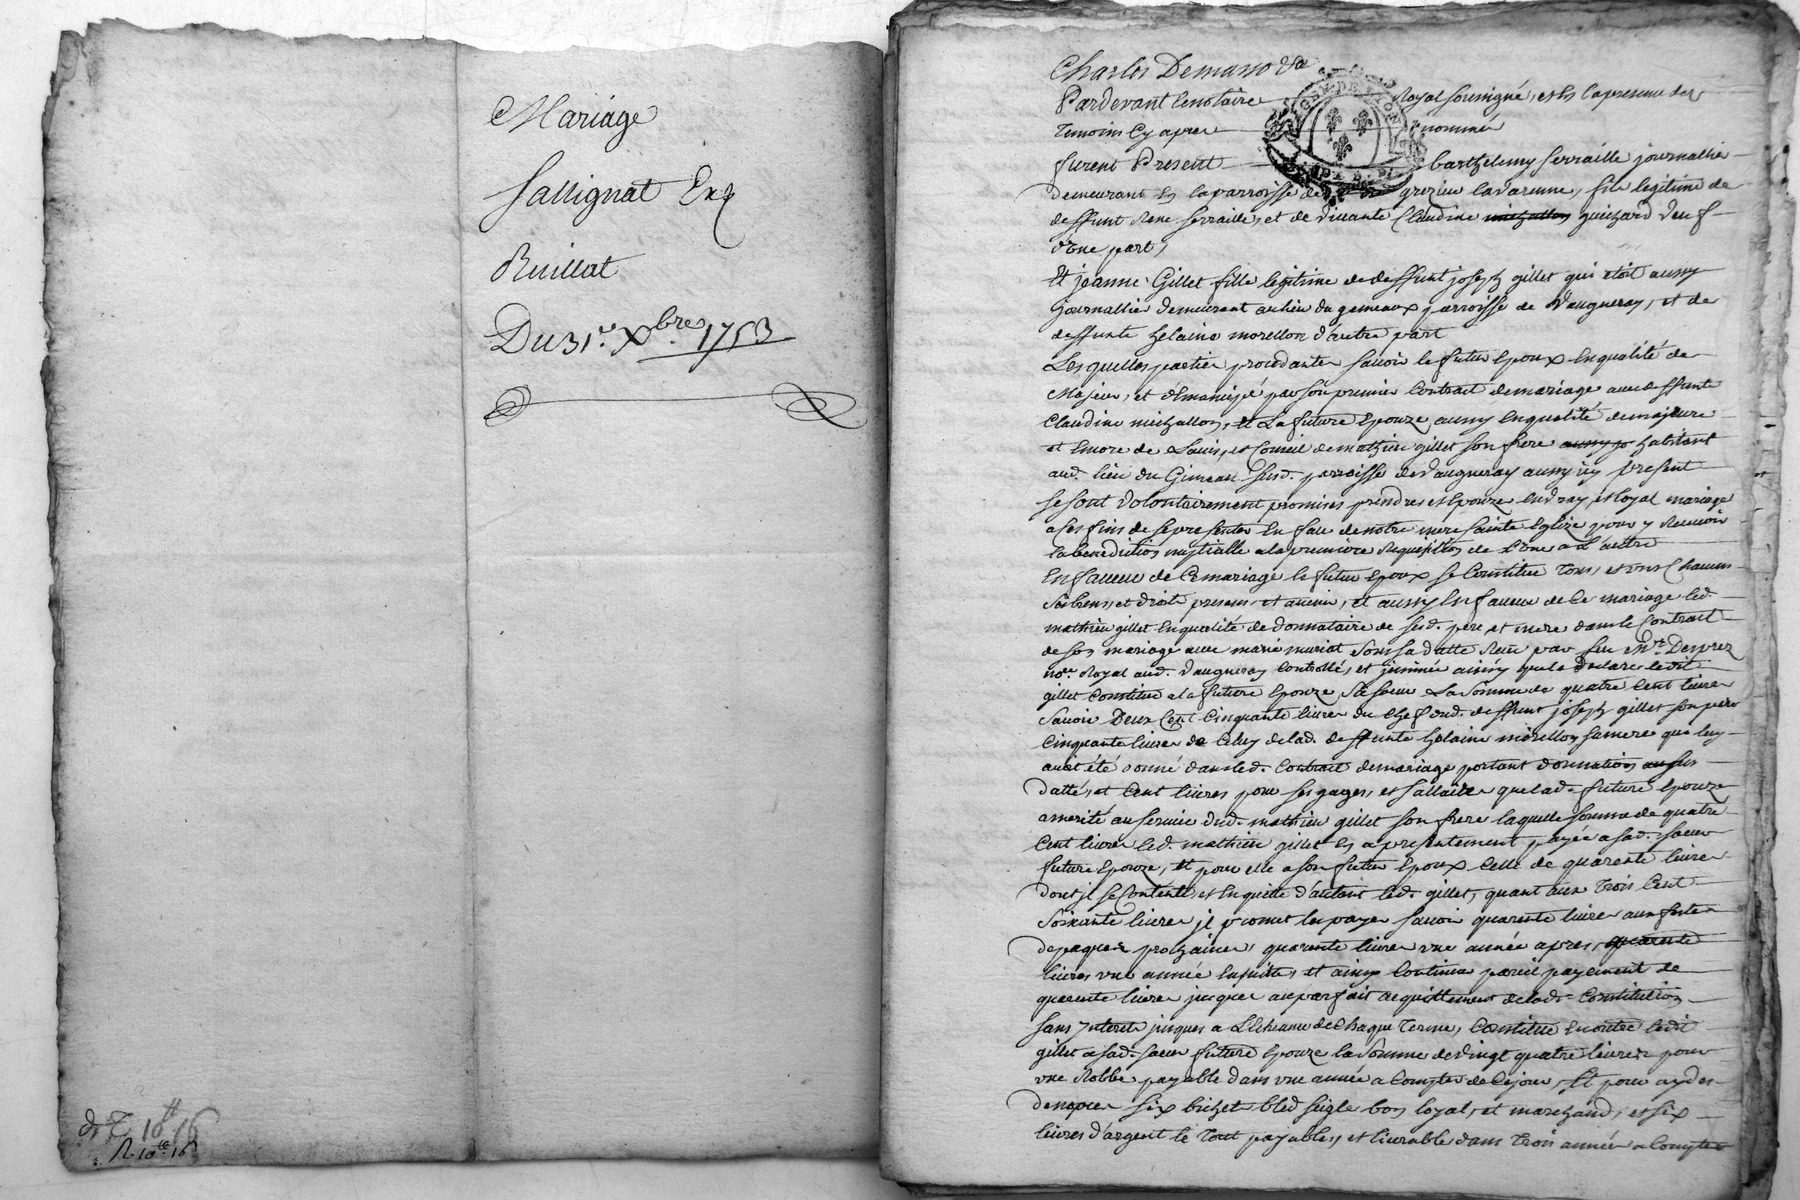 Mariage
Sallignat Et
Ruillat
Du 31.e Xbre. 1753
R. 10 16
Charles Demasso &a
Pardevant le notaire Royal soussigné, et En la presence des
Temoins Cy apres nommés
furent Present barthelemy serraille journallier
demeurant En la parroisse de grezieu lavarenne, fils legitime de
deffunt Rene serraille, et de vivante Claudine guichard Veuf
d'une part,
Et jeanne Gillet fille legitime de deffunt joseph gillet qui etoit aussy
journallier demeurant au lieu du gemeaux parroisse de Vaugneray, et de
deffunte helaine morellon d'autre part
Lesquelles parties procedantes savoir le futur Epoux En qualité de
Majeur, et Emancipé par son premier Contrat de mariage avec deffunte
Claudine michallon, Et La future Epouze aussy En qualité de majeure
et Encore de L'avis, et Conseil de mathieu gillet son frere habitant
aud. lieu du Gimeau susd. parroisse de Vaugneray aussy icy present
se sont Volontairement promises prendre et Epouze En vray, et loyal mariage
a Ces fins de se presenter En face de notre mere sainte Eglize pour y Recevoir
la benediction nuptialle a la premiere Requisition de L'une a L'autre
En faveur de Ce mariage le futur Epoux se Constitue tous, et uns Chacuns
ses biens, et droits presens, et avenir, et aussy En faveur de Ce mariage led.
mathieu gillet En qualité de donnataire de sesd. pere, et mere dans le Contrat
de son mariage avec marie muriat sous sa datte Reçu par feu Me. Desprez
nore. Royal aud. Vaugneray Controllé, et insinué ainsy que le declare ledit
gillet Constitue a la future Epouze sa soeur La somme de quatre Cent livres
savoir Deux Cent Cinquante livres du Chef dud. deffunt joseph gillet son pere
Cinquante livres de Celuy de lad. deffunte helaine morellon sa mere que luy
avoit été donné dans led. Contrat de mariage portant donnation
datté, et Cent livres pour ses gages, et sallaires que lad. future Epouze
a merité au service dud. mathieu gillet son frere laquelle somme de quatre
Cent livres led. mathieu gillet En a presentement payée a sad. soeur
future Epouze, Et pour elle a son futur Epoux Celle de quarente livres
dont il se Contente, et En quitte d'autant led. gillet, quant aux Trois Cent
soixante livres il promet les payer savoir quarente livres aux festes
de paques prochaines, quarente livres une année apres, quarente
livres une année Ensuitte, et ainsy Continuer pareil payement de
quarente livres jusques au parfait acquittement de lad. Constitution
sans interets jusques a L'Echeance de Chaque Terme, Constitue En outre ledit
gillet a sad. soeur future Epouze la somme de Vingt quatre livres pour
une Robbe payable dans une année a Compter de Ce jour, Et pour aydes
de nopces six bichet bled seigle bon loyal, et marchand, et six
livres d'argent le Tout payable, et livrable dans Trois années a Compter